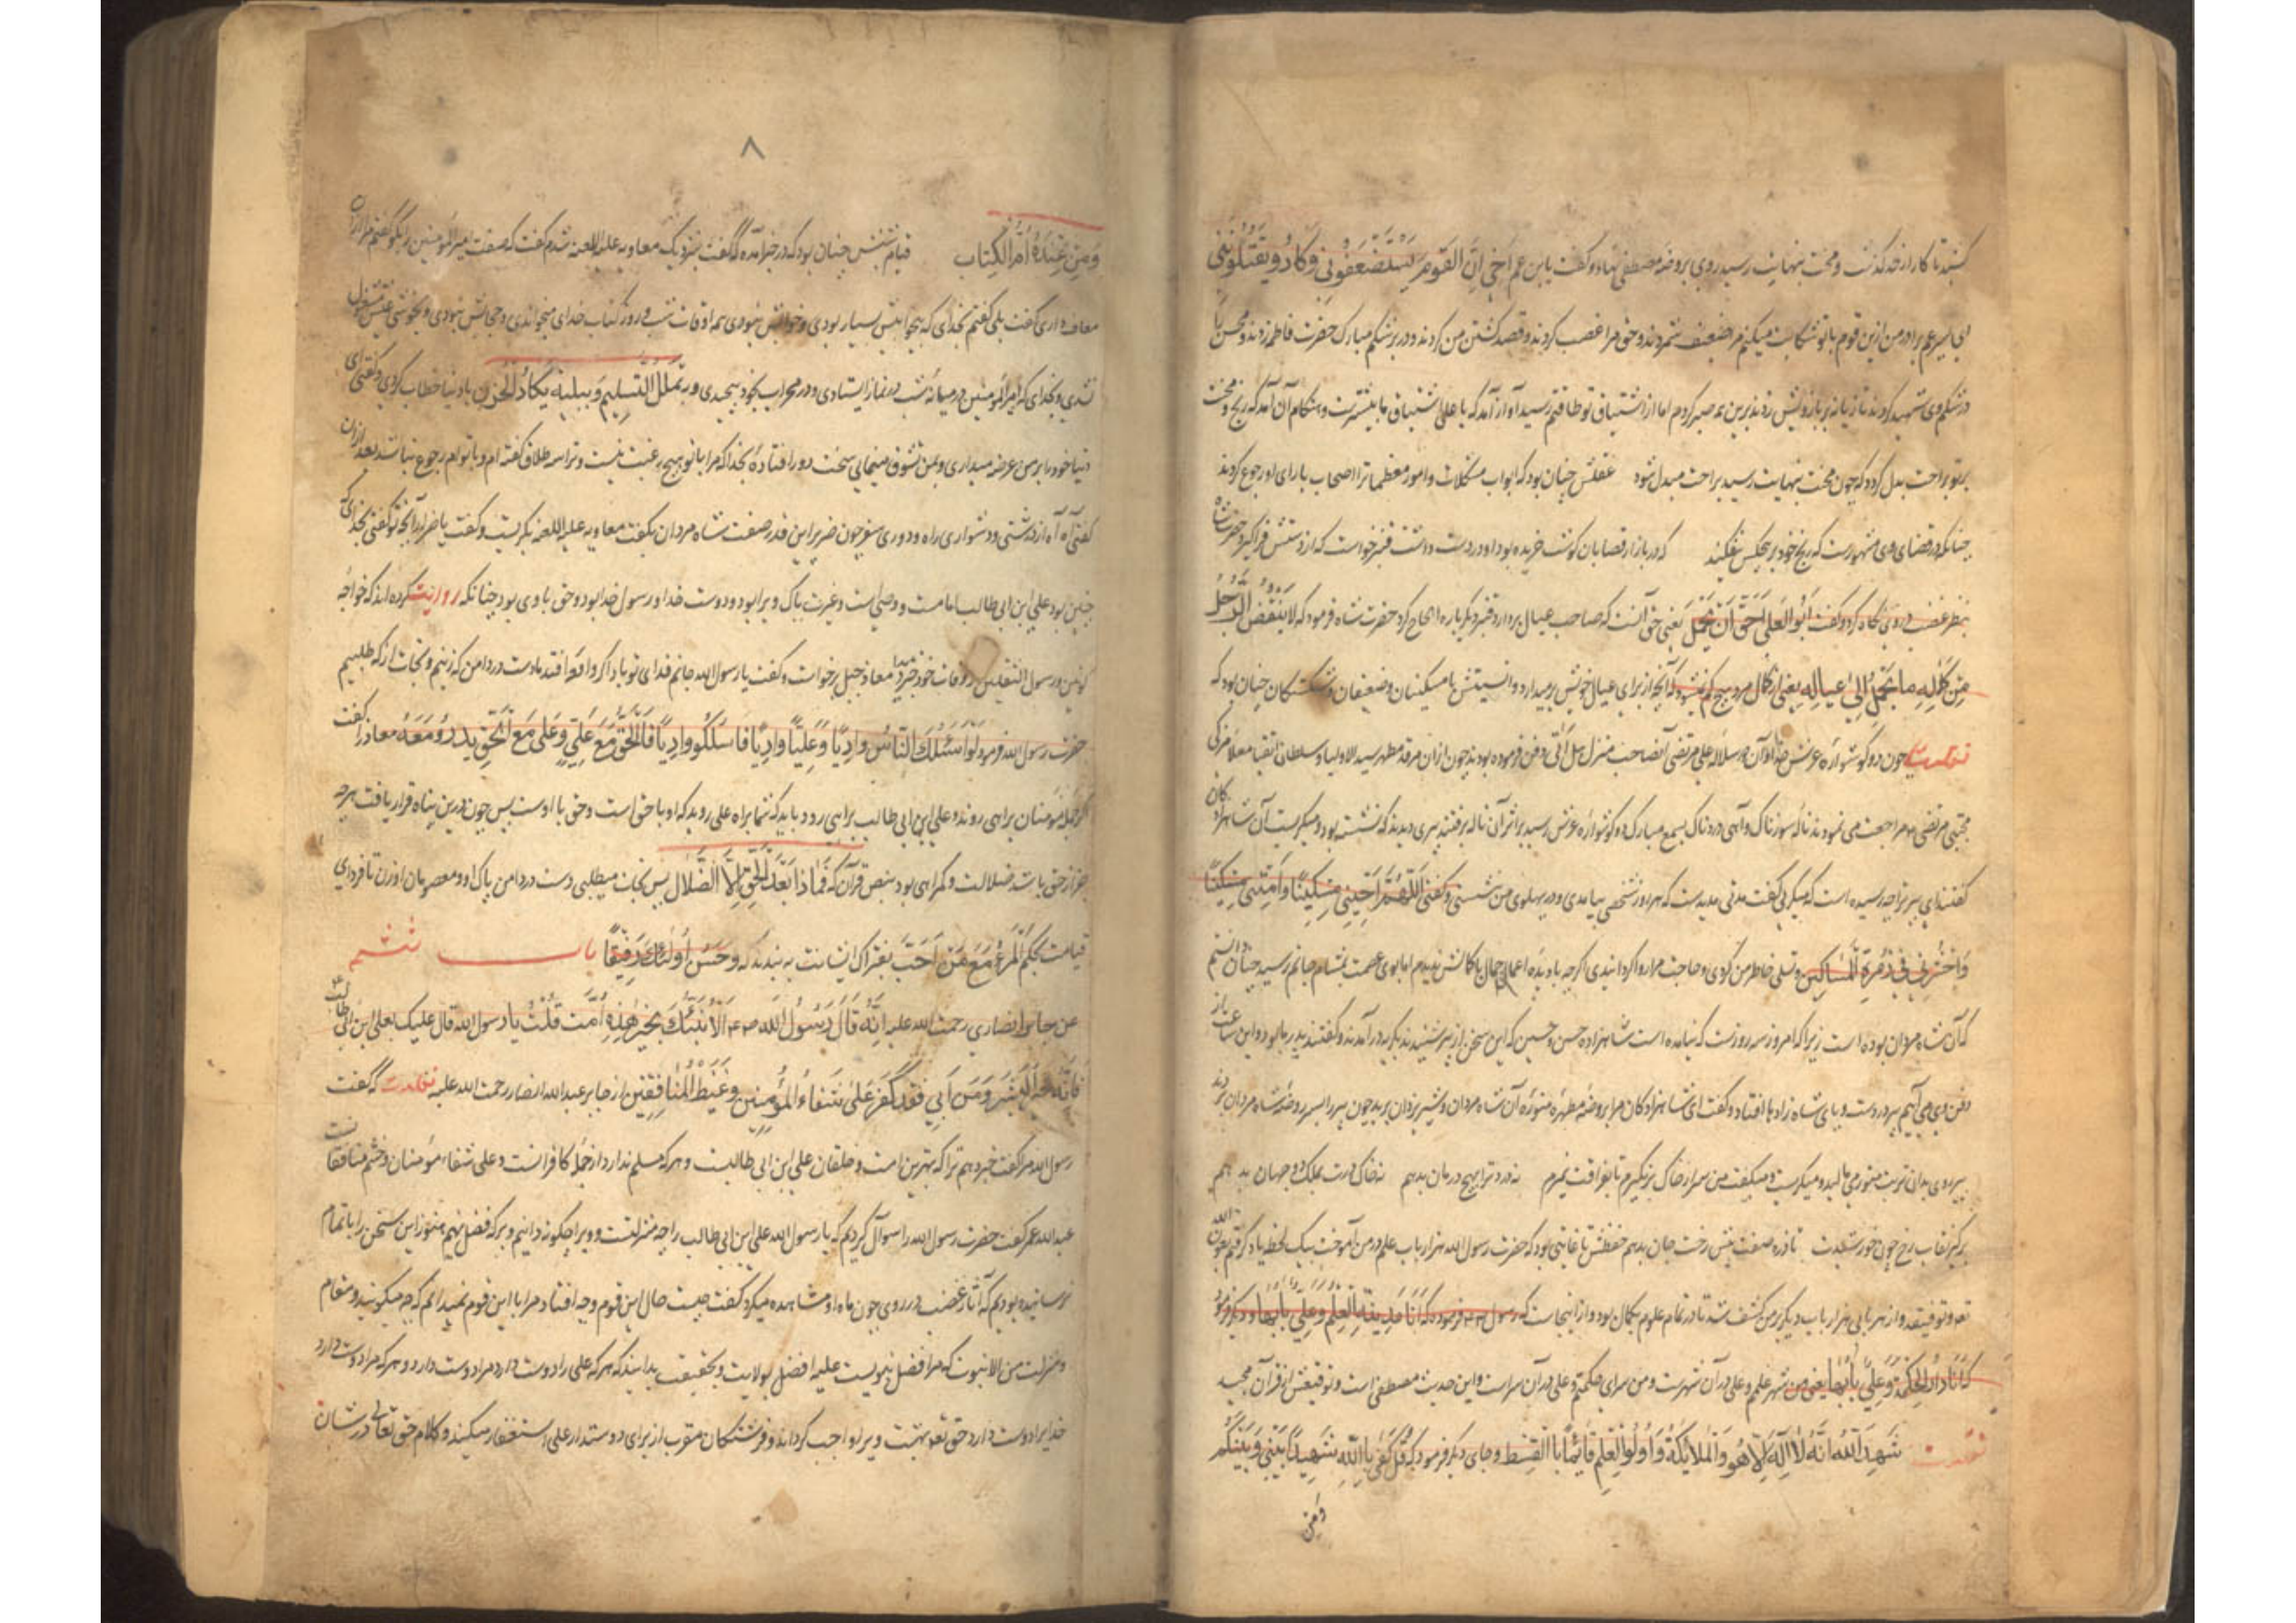 کشید تا کار از حد گذشت و محنت بنهایت رسید روی بروضه مصطفی نهاد و گفت یابن عم اخی اِنَّ القَومَ یَستَضعَفُونِی وَکَادُو یَقتُلُونَنِی
ای پسر عم برادر من ازین قوم با تو شکایت میکنم مرا ضعیف شمردند و حق مرا غصب کردند و قصد کشتن من کردند و در بر شکم مبارک حضرت فاطمه زدند و محسن را
در شکم وی شهید کردند تازیانه بر بازویش زدند برین همه صبر کردم اما از اشتیاق تو طاقتم رسید آواز آمد که یا علی اشتیاق ما بیشترست و هنگام آن آمد که رنج و محنت
بر تو براحت بدل گردد که چون محنت بنهایت رسید براحت مبدل شود عقلش چنان بود که ابواب مشکلات و امور معظمات را اصحاب با رای او رجوع کردند
چنانکه در قضای وی مشهورست که رنج خود بر هیچکس نیفکند که در بازار قصابان گوشت خریده بود او در دست داشت قنبر خواست که از دستش فراگیرد حضرت شاه
بنظر غضب در وی نگاه کرد و گفت اَبُو العَیالِ اَحَقُّ اَن یَحمِلَ یعنی حق آنست که صاحب عیال بردارد قنبر دیگر باره الحاح کرد حضرت شاه فرمود که لایَنقُصُ الرَّجُلُ
مِن کَمَالِه مَا یَحمِلُ اِلی عِیالِه یعنی از کمال مرد هیچ کم نشود که آنچه از برای عیال خویش برمیدارد و انسیتش با مسکینان و ضعیفان و شکستگان چنان بود که
نقلست چون دو گوشواره عرش خدا و آن سلاله علی مرتضی آنصاحب منزل هل اتی دفن فرموده بودند چون از آن مرقد مطهر سید الاولیا و سلطان اتقیا معلا مزکی
مجتبی مرتضی هم مراجعت می نمودند ناله سوزناک و آهی دردناک بسمع مبارک دو گوشواره عرش رسید بر اثر آن ناله برفتند پیری دیدند که نشسته بود و میگریست آن شاهزادگان
گفتند ای پیر ترا چه رسیده است که میگریی گفت مدتی مدیدست که هر روز شخصی بیامدی و در پهلوی من نشستی و گفتی اَللّهُمَّ اَحیِنِی مِسکِینًا وَاَمِتنِی مِسکِینًا
وَاحشُرنِی فِی زُمرَةِ المَسَاکِین و تسلی خاطر من کردی و حاجت مرا روا گردانیدی اگرچه بادیده اعمی جمال با کمالش ندیدم اما بوی عصمت بمشام جانم رسید چنان دانستم
که آن شاه مردان بوده است زیرا که امروز سه روزست که نیامده است شاهزاده حسن و حسین که این سخن از پیر شنیدند بگریه در آمدند و گفتند پدر ما بود و این ساعت از
دفن وی می آییم پیر در دست و پای شاه زادها افتاد و گفت ای شاهزادگان مرا بروضه مطهره منوره آن شاه مردان و شیر یزدان برید چون پیر را بسر روضه شاه مردان بردند
پیر روی بدان تربت منور می مالید و میگریست و میگفت من سر از خاک برنگیرم تا بفراقت نمیرم نه درد ترا بهیچ درمان بدهم نه خاک درت بملک دو جهان بدهم
برگیر نقاب رخ چون خورشیدت تا ذره صفت پیش رخت جان بدهم حفظش تا غایتی بود که حضرت رسول الله هزار باب علم در من آموخت بیک لحظه یاد گرفتم بعون الله
تعالی و توفیقه و از هر بابی هزار باب دیگر بر من کشف شد تا در تمام علوم بکمال بود و از اینجاست که رسول فرموده که اَنَا مَدِینَةُ العِلمِ وَعَلِیٌّ بَابُهَا و دیگر فرمود
که اَنَا دَارُ الحِکمَةِ وَعَلِیٌّ بَابُهَا یعنی من شهر علمم و علی در آن شهرست و من سرای حکمتم و علی در آن سراست و این حدیث مصطفی است و توفیقش از قرآن مجید
نقلست شَهِدَ اللهُ اَنَّهُ لَا اِلَهَ اِلَّا هُوَ وَالمَلَائِکَةُ وَاُولُوا العِلمِ قَائِمًا بِالقِسطِ و جای دیگر فرمود که قُل کَفَی بِاللهِ شَهِیدًا بَینِی وَبَینَکُم
ومن
۸
وَمَن عِندَهُ اُمُّ الکِتَاب قیام شبش چنان بود که در خبر آمده که گفت بنزدیک معاویه علیه اللعنه شدم گفت که صفت امیر المؤمنین را بگو گفتم مرا ازان
معاف داری گفت بلی گفتم بخدای که بیخوابیش بسیار بودی و خوابش نبودی همه اوقات شب و روز کتاب خدای میخواندی و حجابش نبودی و بخوشی عیش مشغول
نشدی و بخدای که امیر المؤمنین در میانه شب در نماز ایستادی و در محراب بخود بپیچیدی و یَتَمَلمَلُ السَّلِیم وَیَبکِی بُکَاءَ الحَزِین با دنیا خطاب کردی و گفتی ای
دنیا خود را بر من عرضه میداری و بمن تشوق مینمایی سخت دور افتاده بخدا که مرا با تو هیچ رغبت نیست و ترا سه طلاق گفته ام و با توام رجوع نباشد بعد از آن
گفتی آه آه از درشتی و دشواری راه و دوری سفر چون ضریر این قدر صفت شاه مردان بگفت معاویه علیه اللعنه بگریست و گفت یا ضریر آنچه تو گفتی بخدای که
چنین بود علی ابن ابی طالب امامست و وصی است و عترت پاک ویرا بود و دوست خدا و رسول خدا بود و حق با وی بود چنانکه روایت کرده اند که خواجه
کونین و رسول الثقلین از وفات خود خبر داد معاذ جبل برخواست و گفت یا رسول الله جانم فدای تو باد اگر واقعه افتد ما دست در دامن که زنیم و نجات از که طلبیم
حضرت رسول الله فرمود لَو اَسلَکَ النَّاسُ وَادِیًا وَعَلِیًّا وَادِیًا فَاسلُکُو وَادِیًا فَالحَقُّ مَعَ عَلِیٍّ وَعَلِی مَعَ الحَقِّ یَدُورُ مَعَهُ معاذ را گفت
اگر جمله مؤمنان براهی روند و علی ابن ابی طالب براهی رود باید که شما براه علی روید که او با حق است و حق با اوست پس چون درین پناه قرار یافت هرچه
جز از حق باشد ضلالت و گمراهی بود بنص قرآن که فَمَاذَا بَعدَ الحَقِّ اِلَّا الضَّلَال پس نجات میطلبی دست در دامن پاک او و معصومان او زن تا فردای
قیامت بحکم اَلمَرءُ مَعَ مَن اَحَبَّ بفتراک ایشانت به بندند که وَحَسُنَ اُولئِکَ رَفِیقًا باب ششم
عن جابر انصاری رحمت الله علیه اَنَّهُ قَالَ رَسُولُ الله اَلَا اُنَبِّئُکَ بِخَیرِ هذِهِ اُمَّت قُلتُ یا رسول الله قال علیک بعلی ابن ابی طالب
فَاِنَّهُ خَیرُ البَشَرِ وَمَن اَبِی فَقَد کَفَر عَلِی شِفَاءُ المُؤمِنِین وَغَیظُ المُنَافِقِین از جابر عبدالله انصار رحمت الله علیه نقلست که گفت
رسول الله مرا گفت خبر دهم ترا که بهترین امت و خلقان علی ابن ابی طالبست و هر که مسلم ندارد از جمله کافرانست و علی شفاء مؤمنان و خشم منافقانست
عبدالله عمر گفت حضرت رسول الله را سوآل کردیم که یا رسول الله علی ابن ابی طالب را چه منزلتست و ویرا چگونه دانیم و بر که فضل نهیم هنوز این سخن را باتمام
نرسانیده بودیم که آثار غضب در روی چون ماه او مشاهده میکرد گفت چیست حال این قوم و چه افتاد مرا با این قوم نمیدانم که چه میگویند و مقام
و منزلت من الا نبوت که مرا فضل بنبوتست علی را فضل بولایت و بحقیقت بدانید که هر که علی را دوست دارد مرا دوست دارد و هر که مرا دوست دارد
خدایرا دوست دارد حق تعالی بهشت ویرا واجب گرداند و فرشتگان مقرب از برای دوستدار علی استغفار میکنند و کلام حق تعالی در شان